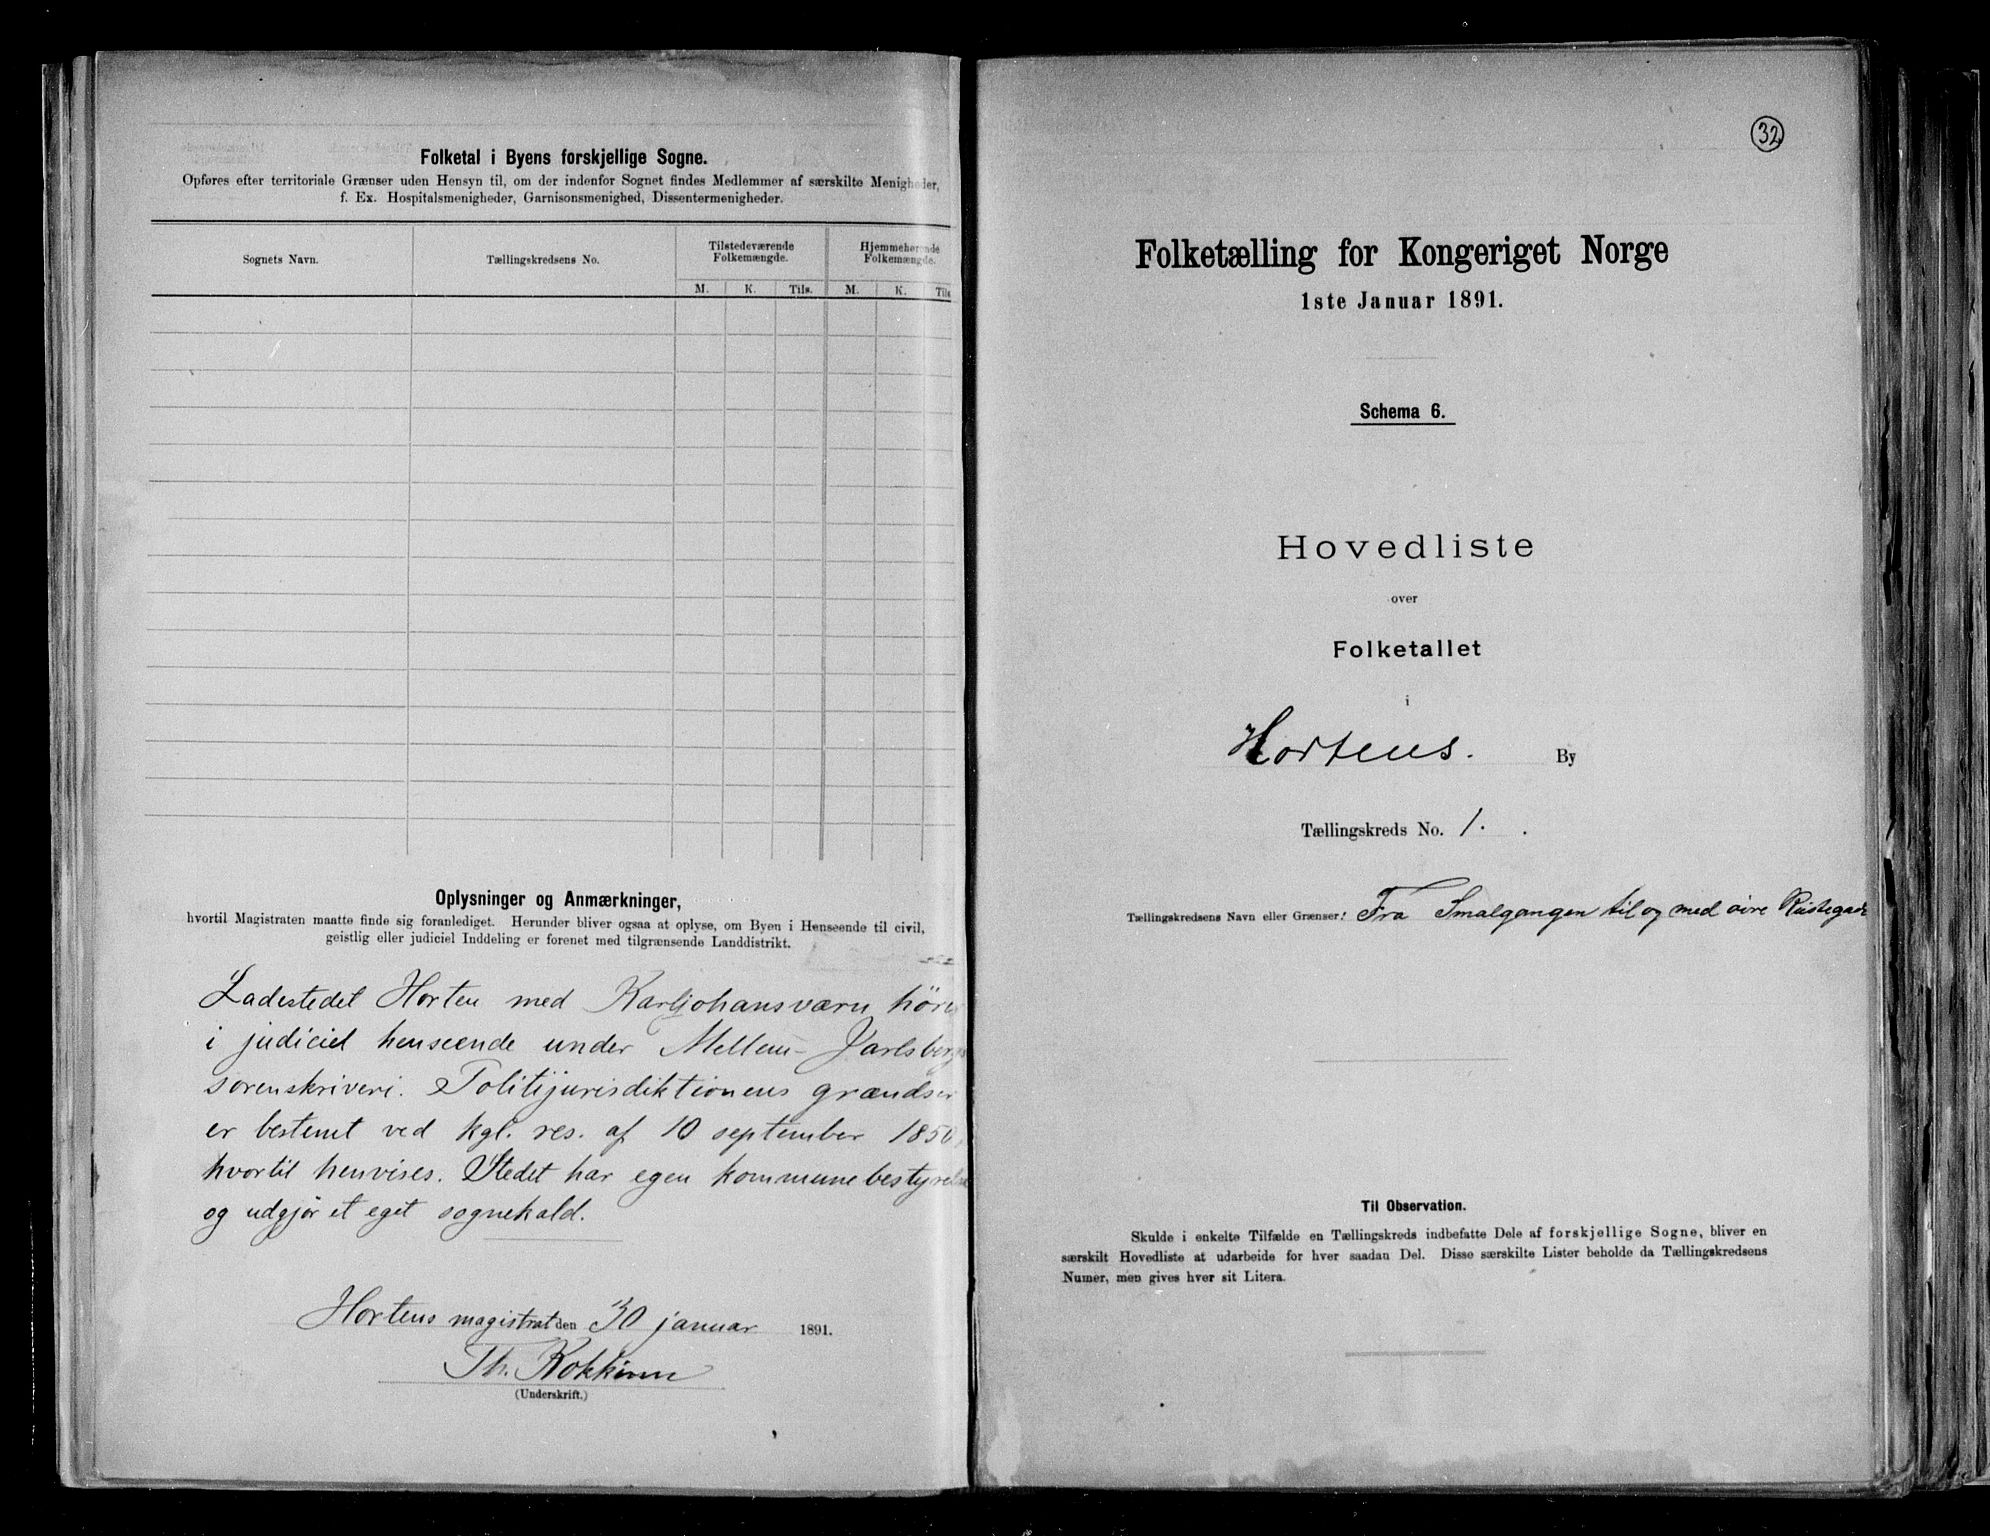 Folketal i Byens forskjellige Sogne.
Opføres efter territoriale Grænser uden Hensyn til, om der indenfor Sognet findes Medlemmer af særskilte Menigheder,
f. Ex. Hospitalsmenigheder, Garnisonsmenighed, Dissentermenigheder.
Sognets Navn. Tællingskredsens No. Tilstedeværende Folkemængde. Hjemmehørende Folkemængde.
M. K. Tils. M. K. Tils
Oplysninger og Anmærkninger,
hvortil Magistraten maatte finde sig foranlediget. Herunder bliver ogsaa at oplyse, om Byen i Henseende til civil,
geistlig eller judiciel Inddeling er forenet med tilgrænsende Landdistrikt.
Ladestedet Horten med Karljohansværn hører
i judiciel henseende under Mellem-Jarlsbergs
sorenskriveri. Politijurisdiktionens grændser
er bestemt ved kgl. res. af 10 september 1850,
hvortil henvises. Stedet har egen kommunebestyrelse
og udgjør et eget sognekald.
Hortens magistrat den 30 januar 1891.
Th.
(Underskrift.)
32
Folketælling for Kongeriget Norge
1ste Januar 1891.
Schema 6.
Hovedliste
over
Folketallet
i
Hortens. By
Tællingskreds No. 1.
Tællingskredsens Navn eller Grænser: Fra Smalgangen til og med øvre Rustegade
Til Observation.
Skulde i enkelte Tilfælde en Tællingskreds indbefatte Dele af forskjellige Sogne, bliver en
særskilt Hovedliste at udarbeide for hver saadan Del. Disse særskilte Lister beholde da Tællingskredsens
Numer, men gives hver sit Litera.